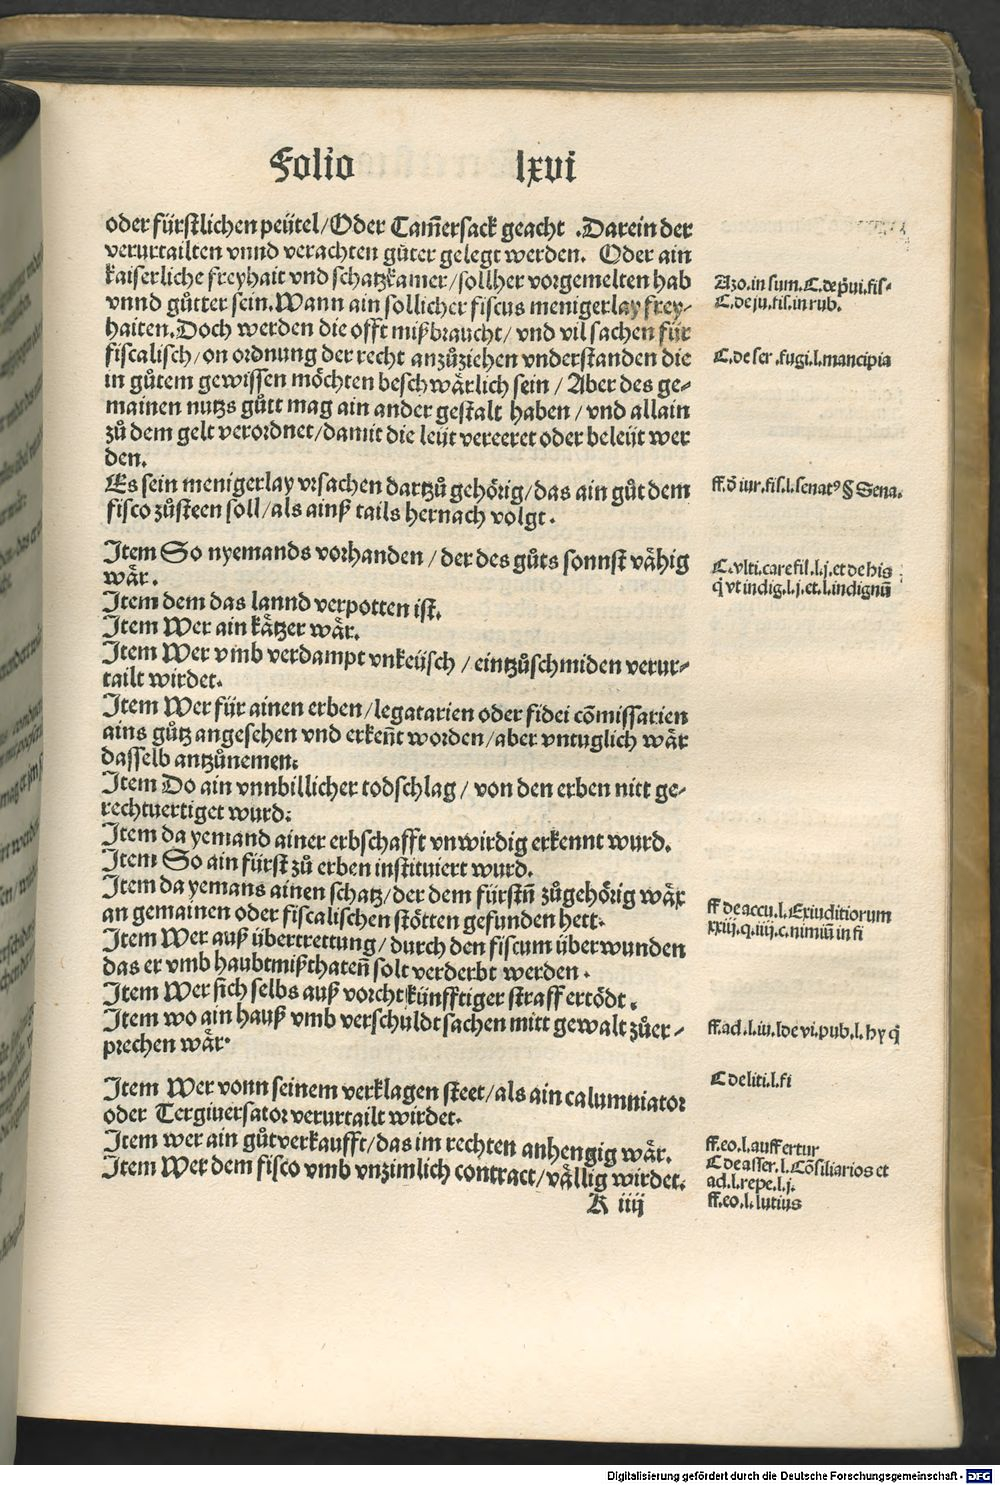 Folio lxvi
oder fürstlichen peütel/Oder Cam̃ersack geacht .Darein der
verurtailten vnnd verachten gůter gelegt werden. Oder ain
kaiserliche freyhait vnd schatzkamer/sollher vorgemelten hab
vnnd gůtter sein.Wann ain sollicher fiscus menigerlay frey-
haiten.Doch werden die offt mißbraucht/ vnd vil sachen für
fiscalisch/on ordnung der recht anzůziehen vnderstanden die
in gůtem gewissen möchten beschwärlich sein / Aber des ge-
mainen nutzs gůtt mag ain ander gestalt haben / vnd allain
zů dem gelt verordnet/damit die leüt vereeret oder beleüt wer
den.
Es sein menigerlay vrsachen dartzů gehörig/das ain gůt dem
fisco zůsteen soll/als ainß tails hernach volgt.
Item So nyemands vorhanden / der des gůts sonnst vähig
wär.
Item dem das lannd verpotten ist.
Item Wer ain kätzer wär.
Item Wer vmb verdampt vnkeüsch / eintzůschmiden verur-
tailt wirdet.
Item Wer für ainen erben/legatarien oder fidei cõmissarien
ains gůtz angesehen vnd erkeñt worden/aber vntuglich wär
dasselb antzůnemen.
Item Do ain vnnbillicher todschlag / von den erben nitt ge-
rechtuertiget wurd.
Item da yemand ainer erbschafft vnwirdig erkennt wurd.
Item So ain fürst zů erben instituiert wurd.
Item da yemans ainen schatz/der dem fürstñ zůgehörig wär
an gemainen oder fiscalischen stötten gefunden hett.
Item Wer auß übertrettung/ durch den fiscum überwunden
das er vmb haubtmißthateñ solt verderbt werden .
Item Wer sich selbs auß vorcht künfftiger straff ertödt .
Item wo ain hauß vmb verschuldt sachen mitt gewalt zůer-
prechen wär.
Item Wer vonn seinem verklagen steet/als ain calumniator
oder Tergiuersator verurtailt wirdet.
Item wer ain gůt verkaufft/das im rechten anhengig wär.
Item Wer dem fisco vmb vnzimlich contract/vällig wirdet.
K iiij
Azo.in sum.C.de p̃ui.fis-
C.de ju.fis.in rub.
C.de ser .fugi.l.mancipia
ff.đ iur.fis.l.senatꝰ § Sena.
C.vlti.care fil.l.j.et de his
q̃ vt indig.l.j.et.l.indignũ
ff de accu.l.Ex iuditiorum
xxiij.q.iiij.c.nimiũ in fi
ff.ad.l.iu.l de vi.pub.l.hy q̃
C de liti.l.fi
ff.eo.l.auffertur
C de asser.l.Cõsiliarios et
ad.l.repe.l.j.
ff.eo.l.lutius
Digitalisierung gefördert durch die Deutsche Forschungsgemeinschaft - DFG